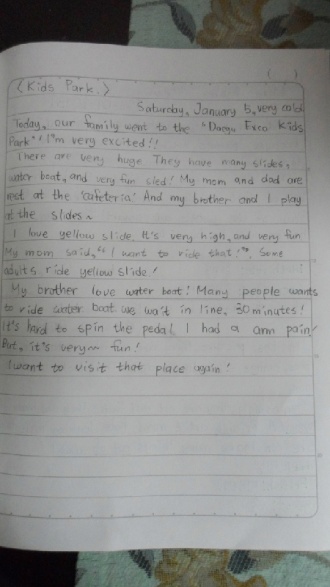 ( )
< Kids Park. >
Saturday, January 5, very cold
Today, our family went to the "Daegu Exco Kids
Park" "I'm very excited!!
There are very huge They have many slides,
water boat, and very fun sled! My mom and dad are
rest at the 'cafeteria.' And my brother and I play
at the slides~
I love yellow slide. It's very high, and very fun
My mom said, "I want to ride that!". Some
adults ride yellow slide!
My brother love water boat! Many people wants
to ride water boat we wait in line, 30 minutes!
It's hard to spin the pedal I had a arm pain!
But, it's very~ fun!
I want to visit that place again!